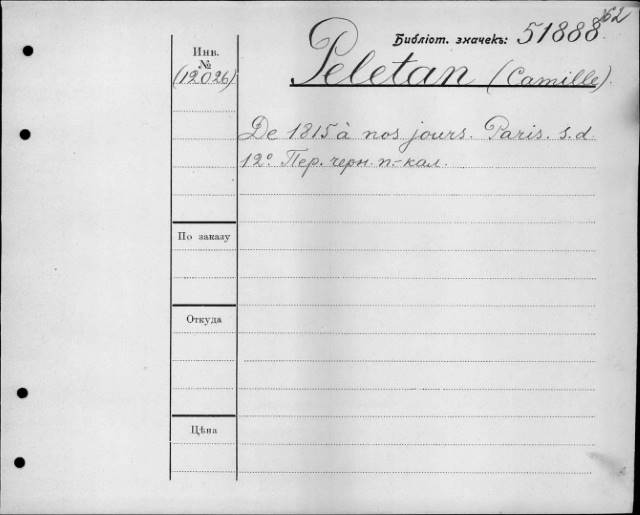 162
Библіот. значекъ: 51888
Инв.
№
(12026)
Peletan (Camille).
De 1815 à nos jours. Paris. s.d.
12º. Пер. черн. п.-кал.
По заказу
Откуда
Цѣна